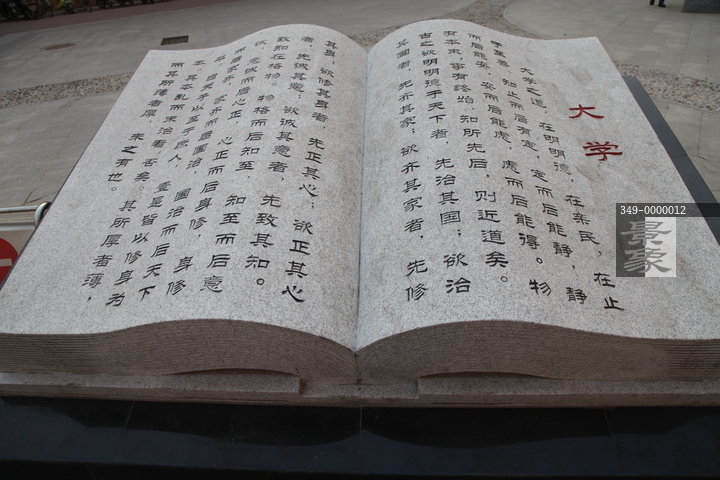 大学
大学之道，在明明德，在亲民，在止
于至善。知止而后有定，定而后能静，静
而后能安，安而后能虑，虑而后能得。物
有本末，事有终始，知所先后，则近道矣。
古之欲明明德于天下者，先治其国；欲治
其国者，先齐其家；欲齐其家者，先修
其身；欲修其身者，先正其心；欲正其心
者，先诚其意；欲诚其意者，先致其知。
致知在格物。物格而后知至，知至而后意
诚，意诚而后心正，心正而后身修，身修
而后家齐，家齐而后国治，国治而后天下
平。自天子以至于庶人，壹是皆以修身为
本。其本乱而末治者否矣。其所厚者薄，
而其所薄者厚，未之有也。
349-0000012
景象